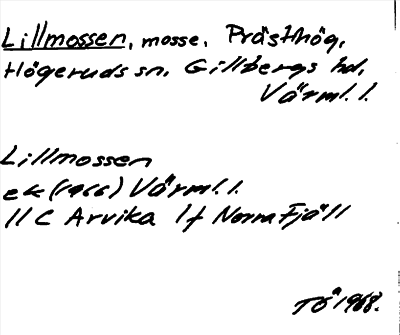 Lillmossen, mosse, Prästhög,
Högeruds sn. Gillbergs hd,
Värml. l.
Lillmossen
ek (1966) Värml. l.
11 C Arvika 1 f Norra Fjäll
TÖ 1968.